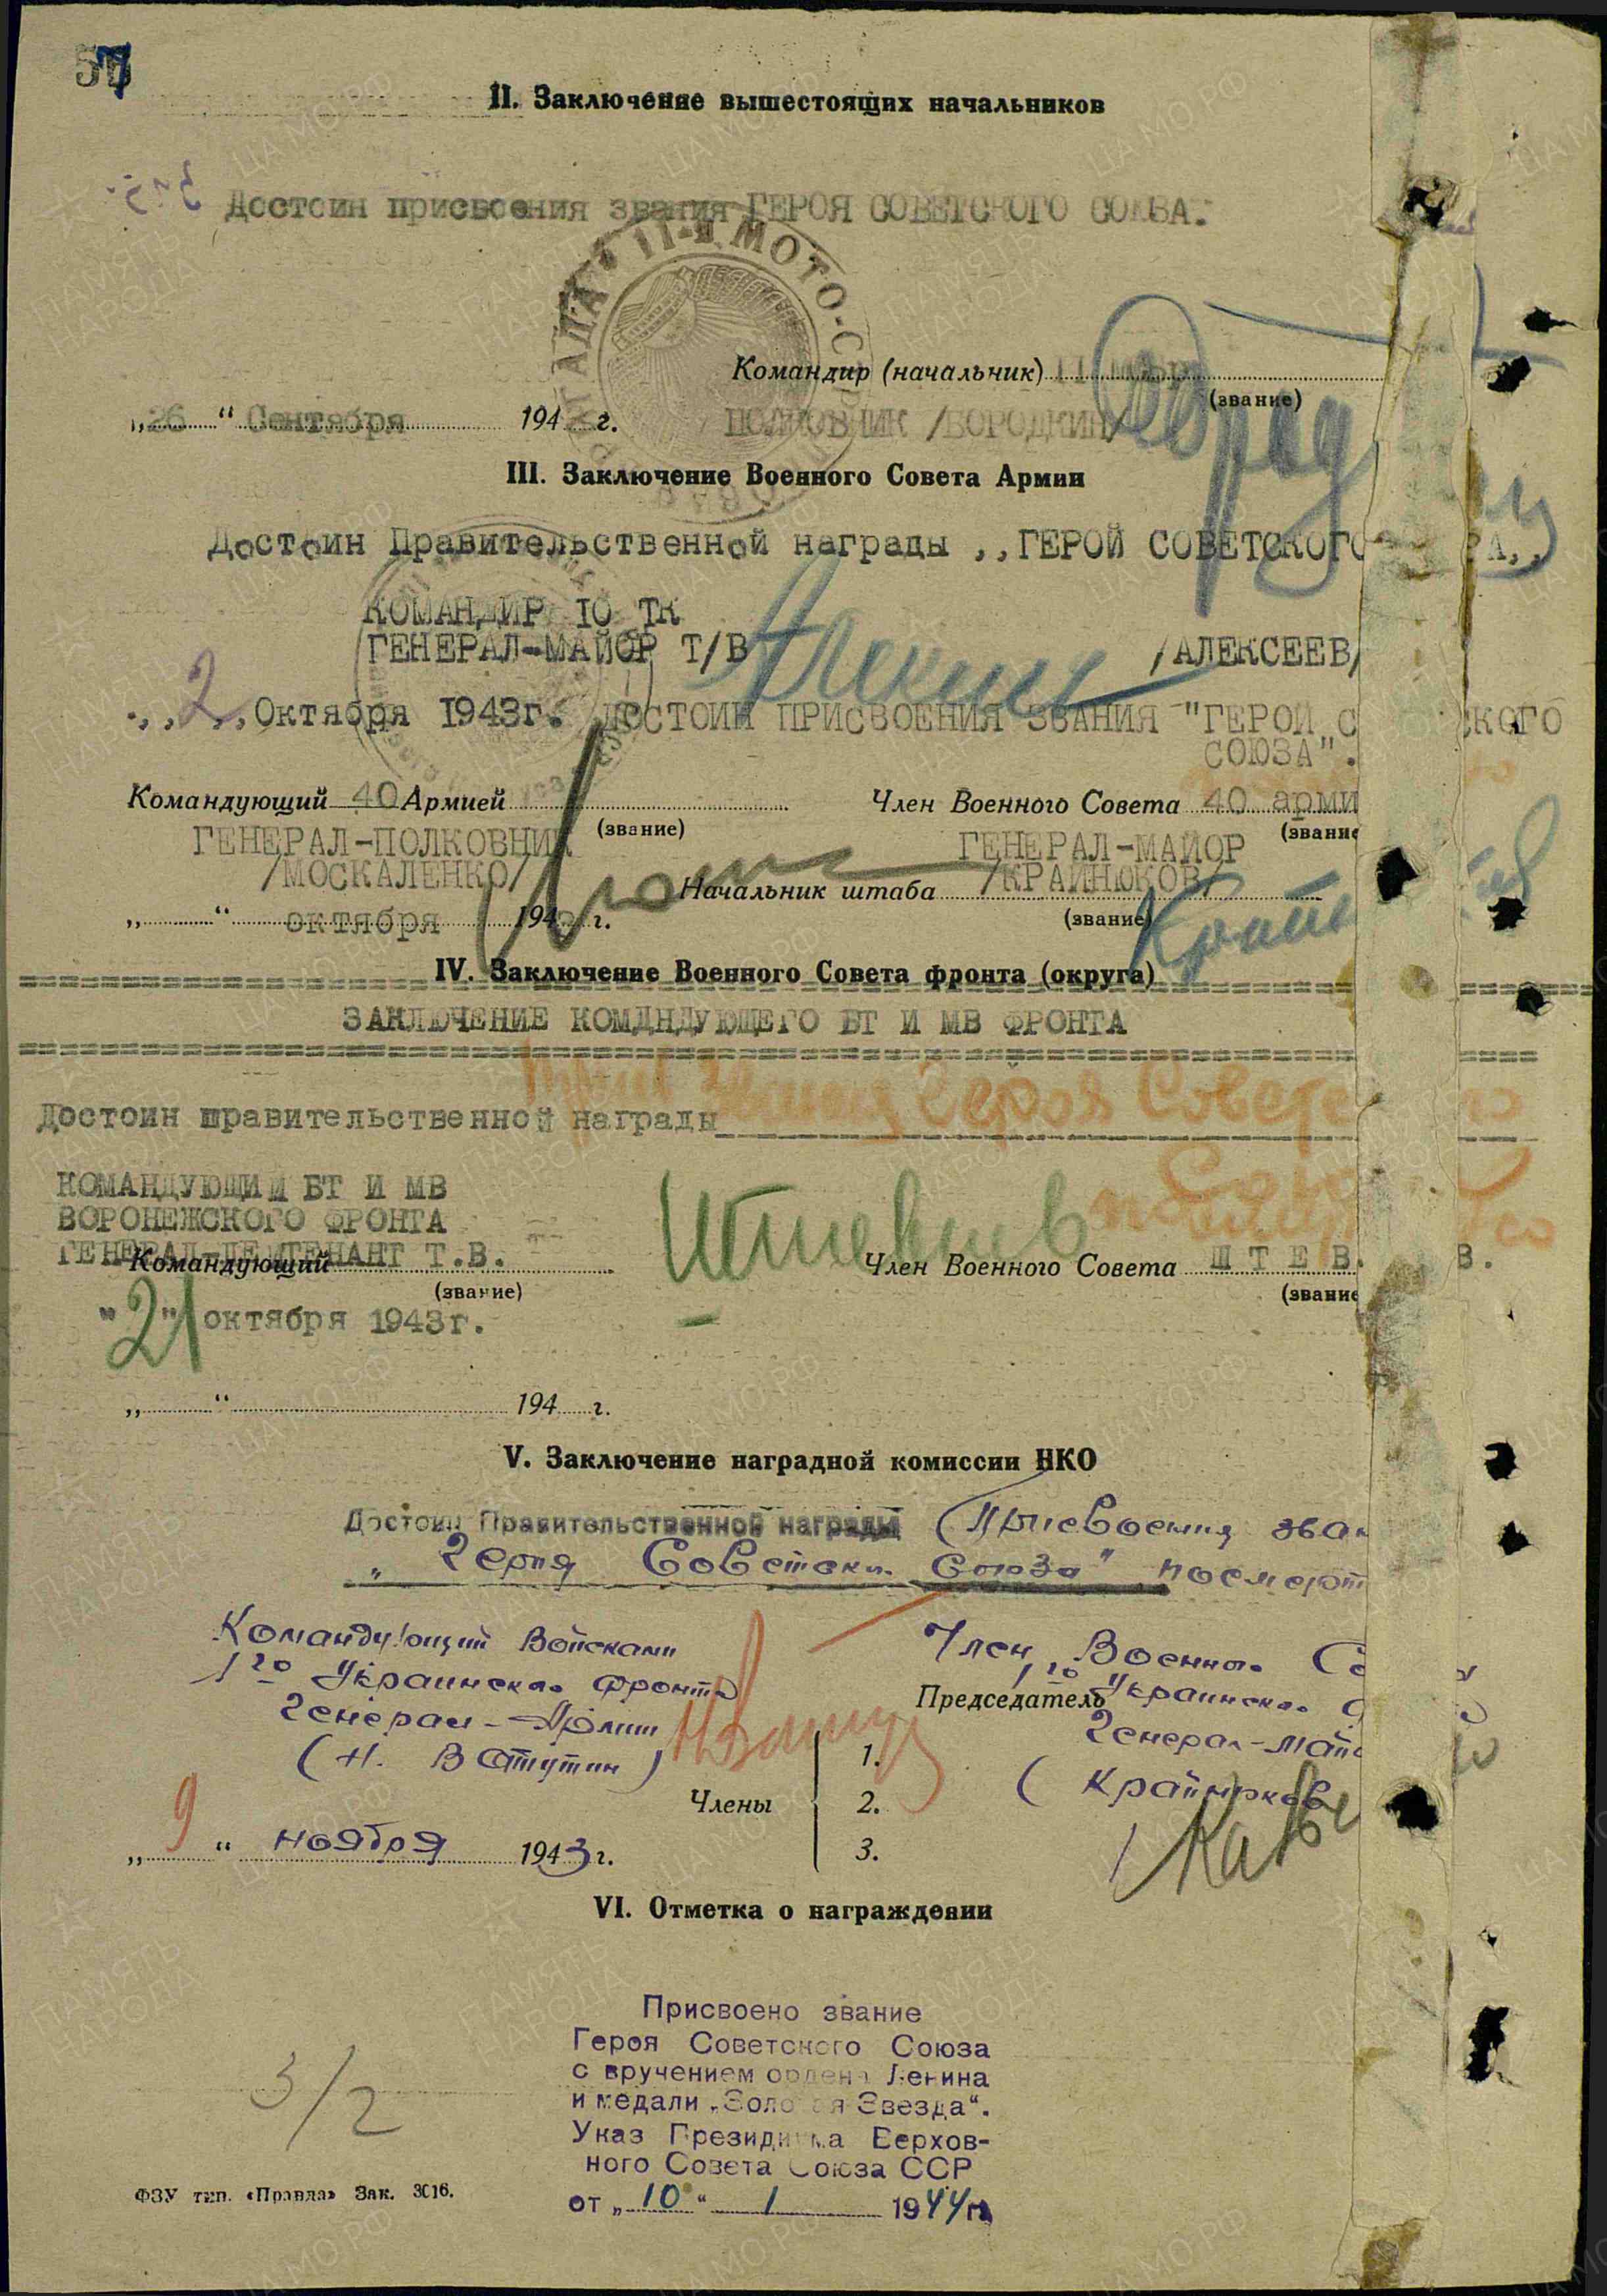 57
II. Заключение вышестоящих начальников
Достоин присвоения звания ГЕРОЯ СОВЕТСКОГО СОЮЗА.
Командир (начальник) 11 мсбр
(звание)
„26“ Сентября 194 г. ПОЛКОВНИК /БОРОДКИН/
III. Заключение Военного Совета Армии
Достоин Правительственной награды ,,ГЕРОЙ СОВЕТСКОГО
КОМАНДИР 10 ТК
ГЕНЕРАЛ-МАЙОР Т/В /АЛЕКСЕЕВ/
,,2,,Октября 1943г. ДОСТОИН ПРИСВОЕНИЯ ЗВАНИЯ "ГЕРОЙ С СКОГО
СОЮЗА".
Командующий 40 Армией Член Военного Совета 40 арми
ГЕНЕРАЛ-ПОЛКОВНИК (звание) ГЕНЕРАЛ-МАЙОР (звание
/МОСКАЛЕНКО/ Начальник штаба /КРАЙНЮКОВ/
„ “ октября 1943 г. (звание)
IV. Заключение Военного Совета фронта (округа)
ЗАКЛЮЧЕНИЕ КОМДНДУЮЩЕГО БТ И МВ ФРОНТА
звания Героя Советс го
Достоин правительственной награды
КОМАНДУЮЩИЙ БТ И МВ
ВОРОНЕЖСКОГО ФРОНТА
ГЕНЕРАЛ-ЛЕЙТЕНАНТ Т.В.
Командующий Штевнев Член Военного Совета Ш Т Е В. В.
(звание) (звание
"21" октября 1943г.
„ “ 194 г.
V. Заключение наградной комиссии НКО
Достоин Правительственной награды (присвоения зван
„Героя Советск. Союза" посмерт
Командующий Войсками Член Военного Со
1го Украинского фронта 1го Украинского
Председатель
Генерал-Армии Генерал-май
(Н. Ватутин) 1. (Крайнюков
Члены 2.
3.
„9“ ноября 1943 г.
VI. Отметка о награждении
Присвоено звание
Героя Советского Союза
с вручением ордена Ленина
и медали „Золотая Звезда“.
Указ Президиума Верхов-
ного Совета Союза ССР
от „10“ 1 1944 г.
3/2
ФЗУ тип. «Правда» Зак. 3016.
ПАМЯТЬ НАРОДА
ЦАМО.РФ